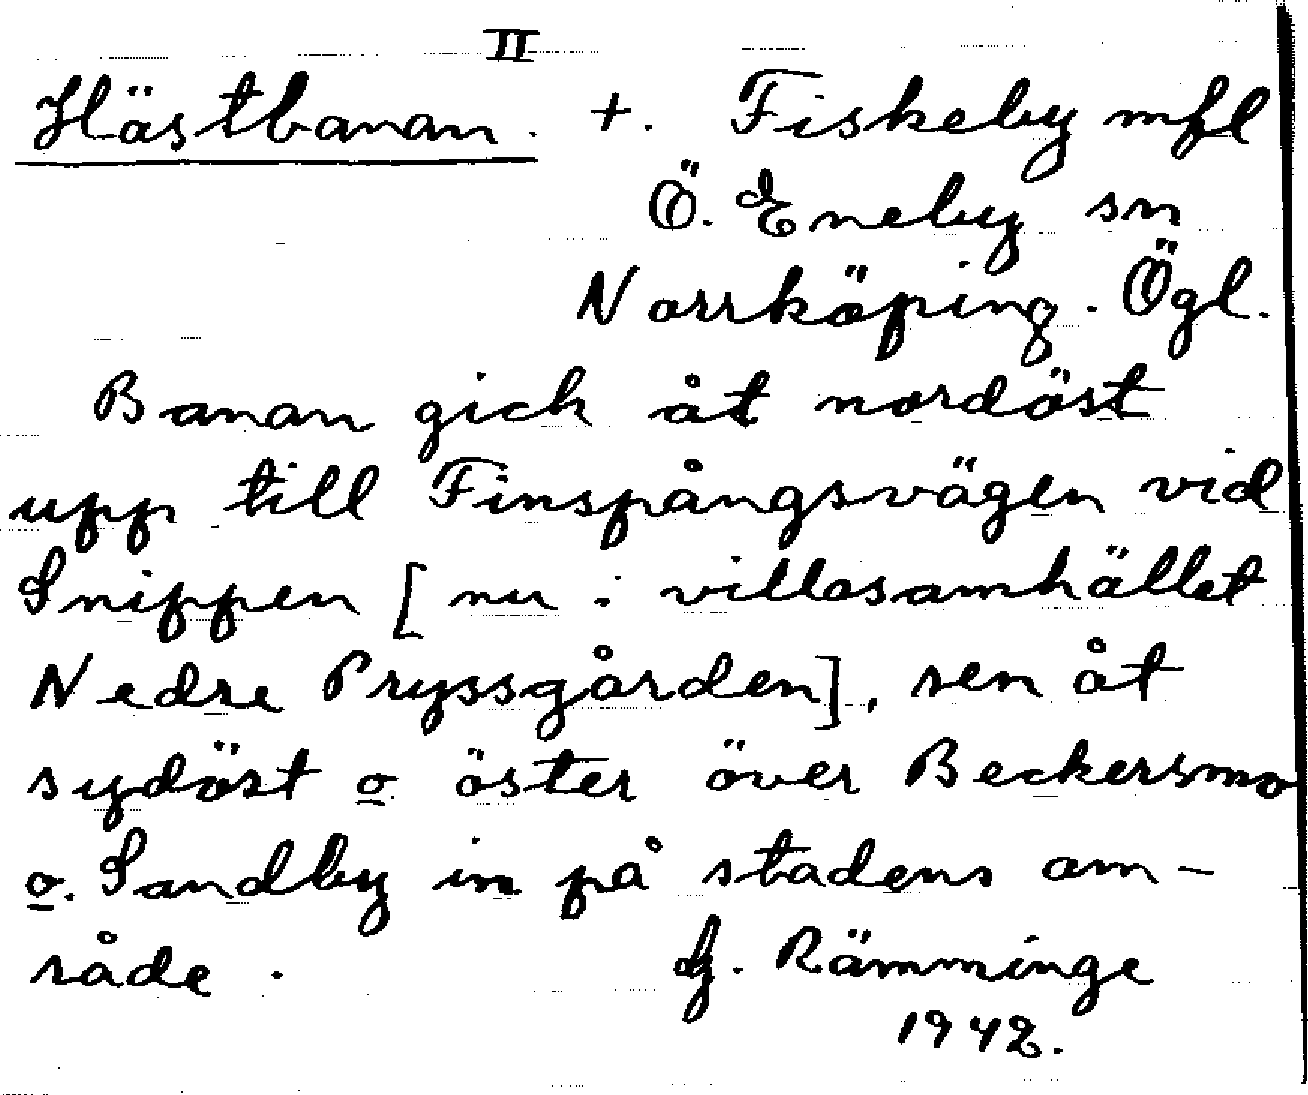 II
Hästbanan. +. Fiskeby mfl
Ö. Eneby sn
Norrköping. Ögl.
Banan gick åt nordöst
upp till Finspångsvägen vid
Snippen [nu : villasamhället
Nedre Pryssgården], sen åt
sydöst o öster över Beckersmo
o. Sandby in på stadens om-
råde. G. Rämminge
1942.